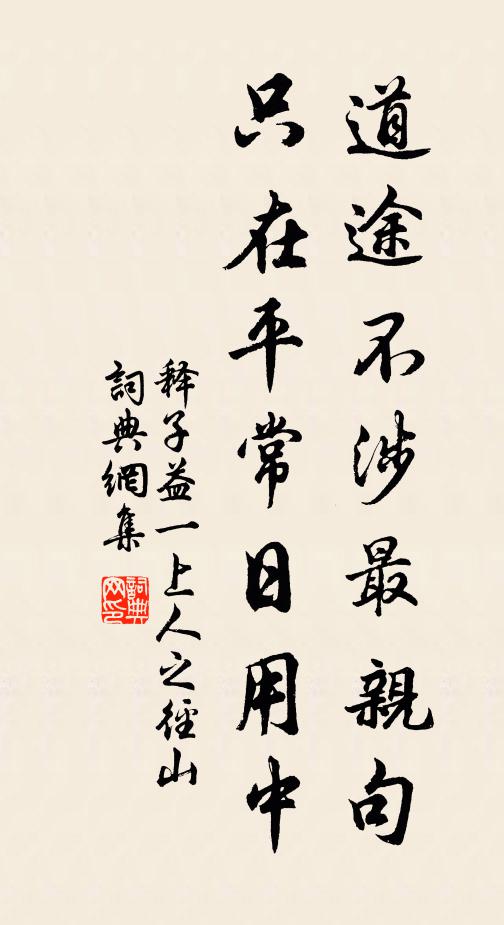 道途不涉最親句
只在平常日用中
释子益一上人之徑山
詞典網集
詞典網印